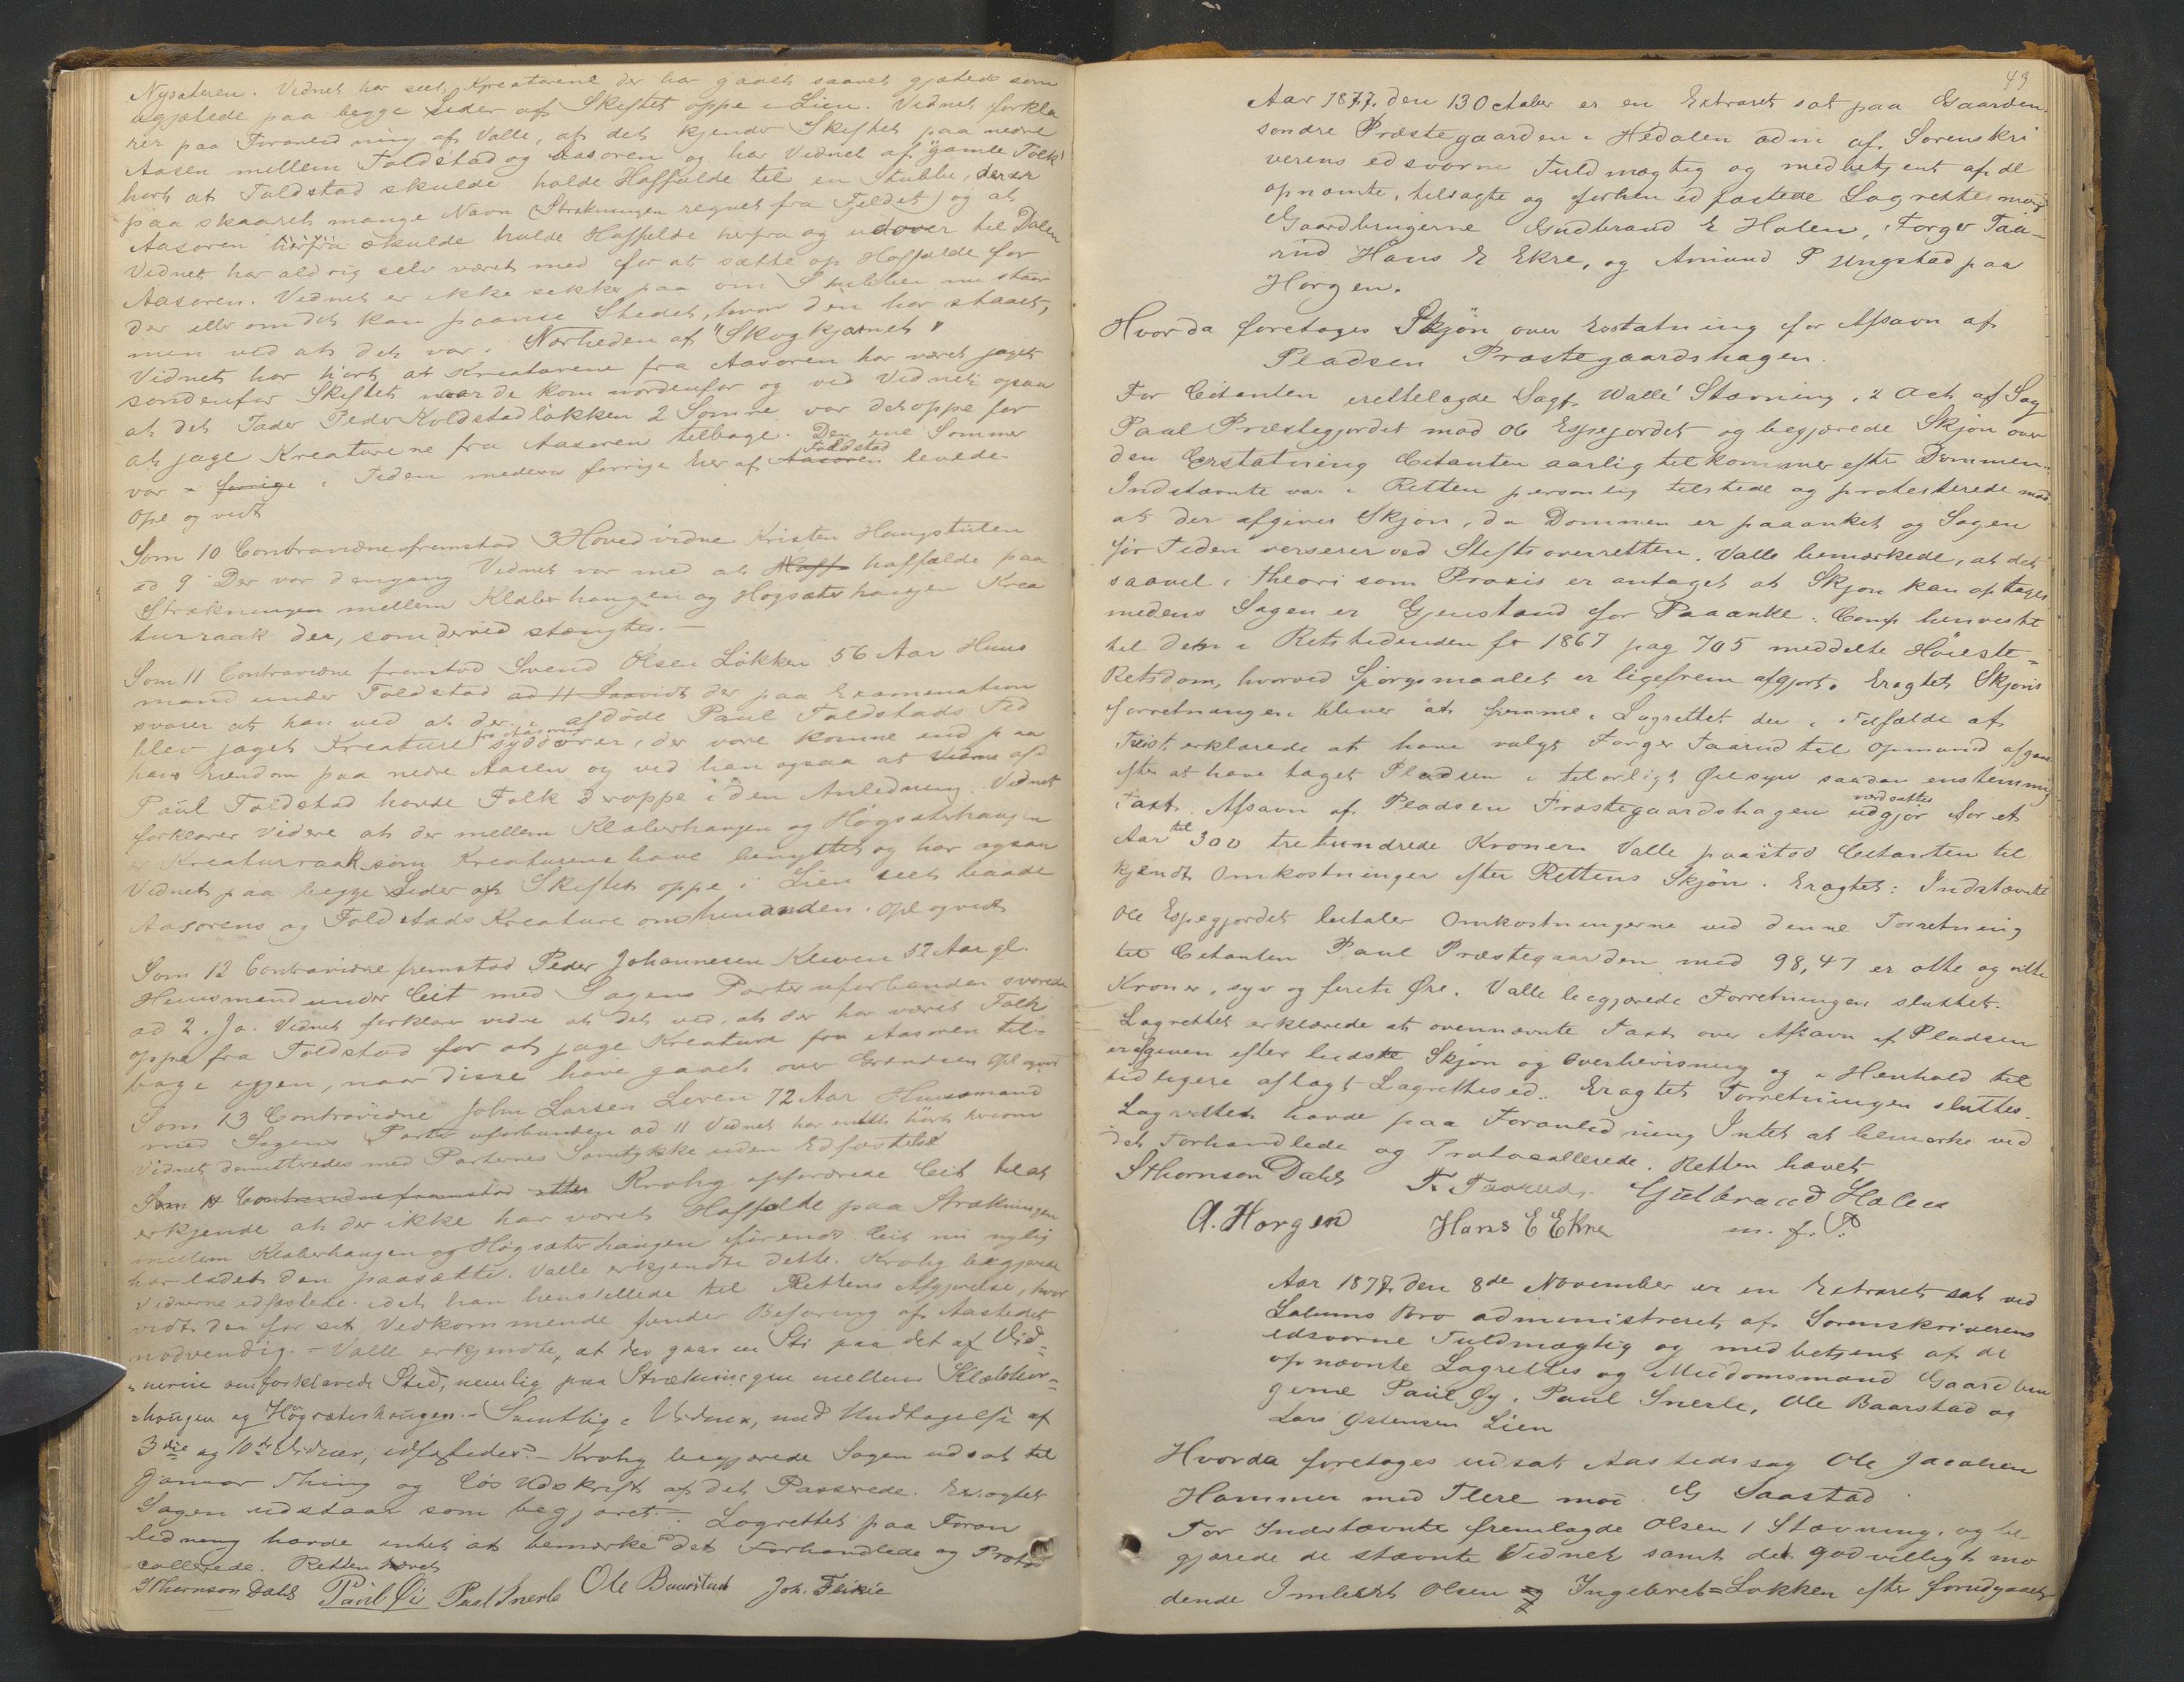 Nysæteren. Vidnet har seet Kreaturene der har gaaet saavel gjætede som
ugjætede paa begge Sider af Skiftet oppe i Lien. Vidnet forkla
rer paa Foranledning af Valle, at det kjender Skiftet paa nedre
Aasen mellem Foldstad og Aasoren og har Vidnet af "gamle Folk"
hørt at Foldstad skulde holde Haffælde til en Stubbe, der er
paa skaaret mange Navn (Strækningen regnet fra Fjeldet) og at
Aasoren herfra skulde holde Haffælde herfra og udover til Dalen
Vidnet har aldrig selv været med for at sætte op Haffælde for
Aasoren. Vidnet er ikke sikker paa om Stubben nu staar
der eller om det kan paavise Stedet, hvor den har staaet,
men ved at det var i Nærheden af "Skogkjærnet"
Vidnet har hørt at Kreaturene fra Aasoren har været jaget
søndenfor Skiftet naar de kom nordenfor og ved Vidnet ogsaa
at det Fader Peder Koldstadløkken 2 Somre var deroppe for
at jage Kreaturene fra Aasoren tilbage. Den ene Sommer
var i Tiden medens forrige Eier af Foldstad levede
Opl og vedt
Som 10 Contravidne fremstod 3 Hovedvidne Kristen Haugstulen
ad 9 Der var dengang Vidnet var med at haffælde paa
Strækningen mellem Klæberhaugen og Høgsæterhaugen Krea
turraak der, som derved stængtes.-
Som 11 Contravidne fremstod Svend Olsen Løkken 56 Aar Huus
mand under Foldstad ad 11 Saavidt der paa Examination
svarer at han ved at der i afdøde Paul Foldstads Tid
blev jaget Kreature fra Aasoren sydover, der vare komne ind paa
hans Eiendom paa nedre Aasen og ved han ogsaa at
Paul Foldstad havde Folk deroppe i den Anledning. Vidnet
forklarer videre at der mellem Klæberhaugen og Høgsæterhaugen
er Kreaturraak som Kreaturene have benyttet og har ogsaa
Vidnet paa begge Sider af Skiftet oppe i Lien seet baade
Aasorens og Foldstads Kreature om hinanden. Opl og vedt
Som 12 Contravidne fremstod Peder Johannesen Kleven 52 Aar gl.
Huusmand under Cit med Sagens Parter uforbunden svarede
ad 2. Ja. Vidnet forklarer vidre at det ved, at der har været Folk
oppe fra Foldstad for at jage Kreature fra Aasoren til-
bage igjen, naar disse have gaaet over Grændsen Opl og vedt
Som 13 Contravidne John Larsen Leren 72 Aar Huusmand
med Sagens Parter uforbunden ad 11 Vidnet har intet hørt herom
Vidnet demitteredes med Parternes Samtykke uden Edfæstelse
Som 14 Contravidne fremstod Krohg opfordrede Cit til at
erkjende at der ikke har været Haffælde paa Strækningen
mellem Klæberhaugen og Høgsæterhaugen førend Cit nu nylig
har ladet den paasætte. Valle erkjendte dette. Krohg begjærede
Vidnerne edfæstede idet han henstillede til Rettens Afgjørelse, hvor
vidt den for sit Vedkommende finder Befaring af Aastedet
nødvendig.- Valle erkjendte, at der gaar en Sti paa det af Vid-
nerne omforklarede Sted, nemlig paa Strækningen mellem Klæber-
haugen og Høgsæterhaugen.- Samtlige Vidner, med Undtagelse af
3die og 10de Vidner, edfæstedes.- Krohg begjærede Sagen udsat til
Januar Thing og løs Udskrift af det Passerede. Eragtet
Sagen udstaar som begjæret.- Lagrettet paa Foran
ledning havde intet at bemærke ved det Forhandlede og Proto
collerede. Retten hævet
SThornson Dahl Paul Øi Paul Snerle Ole Baarstad Joh. Feikie
43
Aar 1877 den 13 October er en Extraret sat paa Gaarden
søndre Præstegaarden i Hedalen adm af Sorenskri
verens edsvorne Fuldmægtig og medbetjent af de
opnævnte, tilsagte og forhen edfæstede Lagrettesmænd
Gaardbrugerne Gudbrand E Holen, Torger Taa-
rud Hans E Ekre, og Amund P Ungstad paa
Horgen.
Hvorda foretoges Skjøn over Erstatning for Afsavn af
Pladsen Præstegaardshagen.
For Citanten irettelagde Sagf. Walle Stævning, 2 Act af Sag
Paul Præstegjordet mod Ole Espegjordet og begjærede Skjøn over
den Erstatning Citanten aarlig tilkommer efter Dommen.
Indstævnte var i Retten personlig tilstede og protesterede mod
at der afgives Skjøn, da Dommen er paaanket og Sagen
for Tiden verserer ved Stiftsoverretten. Valle bemærkede, at det
saavel i Theori som Praxis er antaget at Skjøn kan optages
medens Sagen er Gjenstand for Paaanke. Comp henviste
til den i Retstidenden for 1867 pag 705 meddelte Høieste-
Retsdom, hvorved Spørgsmaalet er ligefrem afgjort. Eragtet Skjøns
forretningen bliver at fremme. Lagrettet der i Tilfælde af
Tvist erklærede at have valgt Torger Taarud til Opmand afgav
efter at have taget Pladsen i tilørligt Øiesyn saadan enstemmig
Taxt. Afsavn af Pladsen Præstegaardshagen værdsættes for et
Aar til 300 tre hundrede Kroner. Valle paastod Citanten til
kjendt Omkostninger efter Rettens Skjøn. Eragtet: Indstævnte
Ole Espegjordet betaler Omkostningerne ved denne Forretning
til Citanten Paul Præstegaarden med 98,47 er otte og nitti
Kroner, syv og firti Øre. Valle begjærede Forretningen sluttet.
Lagrettet erklærede at ovennævnte Taxt over Afsavn af Pladsen
er afgiven efter bedste Skjøn og Overbevisning og i Henhold til
tidligere aflagt Lagretteseed. Eragtet Forretningen sluttes.
Lagrettet havde paa Foranledning Intet at bemærke ved
det Forhandlede og Protocollerede. Retten hævet
SThornson Dahl T. Taarud. Gulbrand Holen
A. Horgen Hans E Ekre m. f. P.
Aar 1877 den 8de November er en Extraret sat ved
Lalums Bro administreret af Sorenskriverens
edsvorne Fuldmægtig og medbetjent af de
opnævnte Lagrettes og Meddomsmænd Gaardbru
gerne Paul Øy, Paul Snerle, Ole Baarstad og
Lars Østensen Lien
Hvorda foretoges udsat Aastedssag Ole Jacobsen
Hammer med Flere mod G Saastad
For Indstævnte fremlagde Olsen 1 Stævning, og be
gjærede de stævnte Vidner samt det godvilligt mø
dende Olsen Ingebret Løkken efter forudgaaet